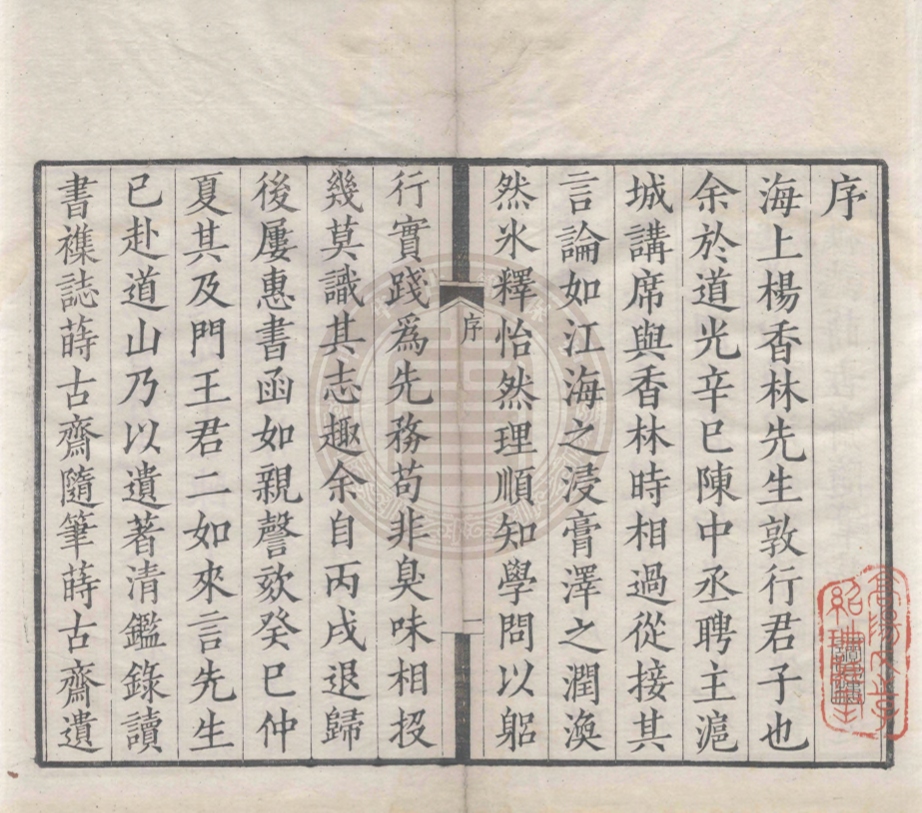 序
海上楊香林先生敦行君子也
余於道光辛巳陳中丞聘主滬
城講席與香林時相過從接其
言論如江海之浸膏澤之潤渙
然氷釋怡然理順知學問以躬
序
一
行實踐爲先務苟非臭味相投
幾莫識其志趣余自丙戌退歸
後屢惠書函如親謦欬癸巳仲
夏其及門王君二如來言先生
已赴道山乃以遺著清鑑錄讀
書襍誌蒔古齋隨筆蒔古齋遺